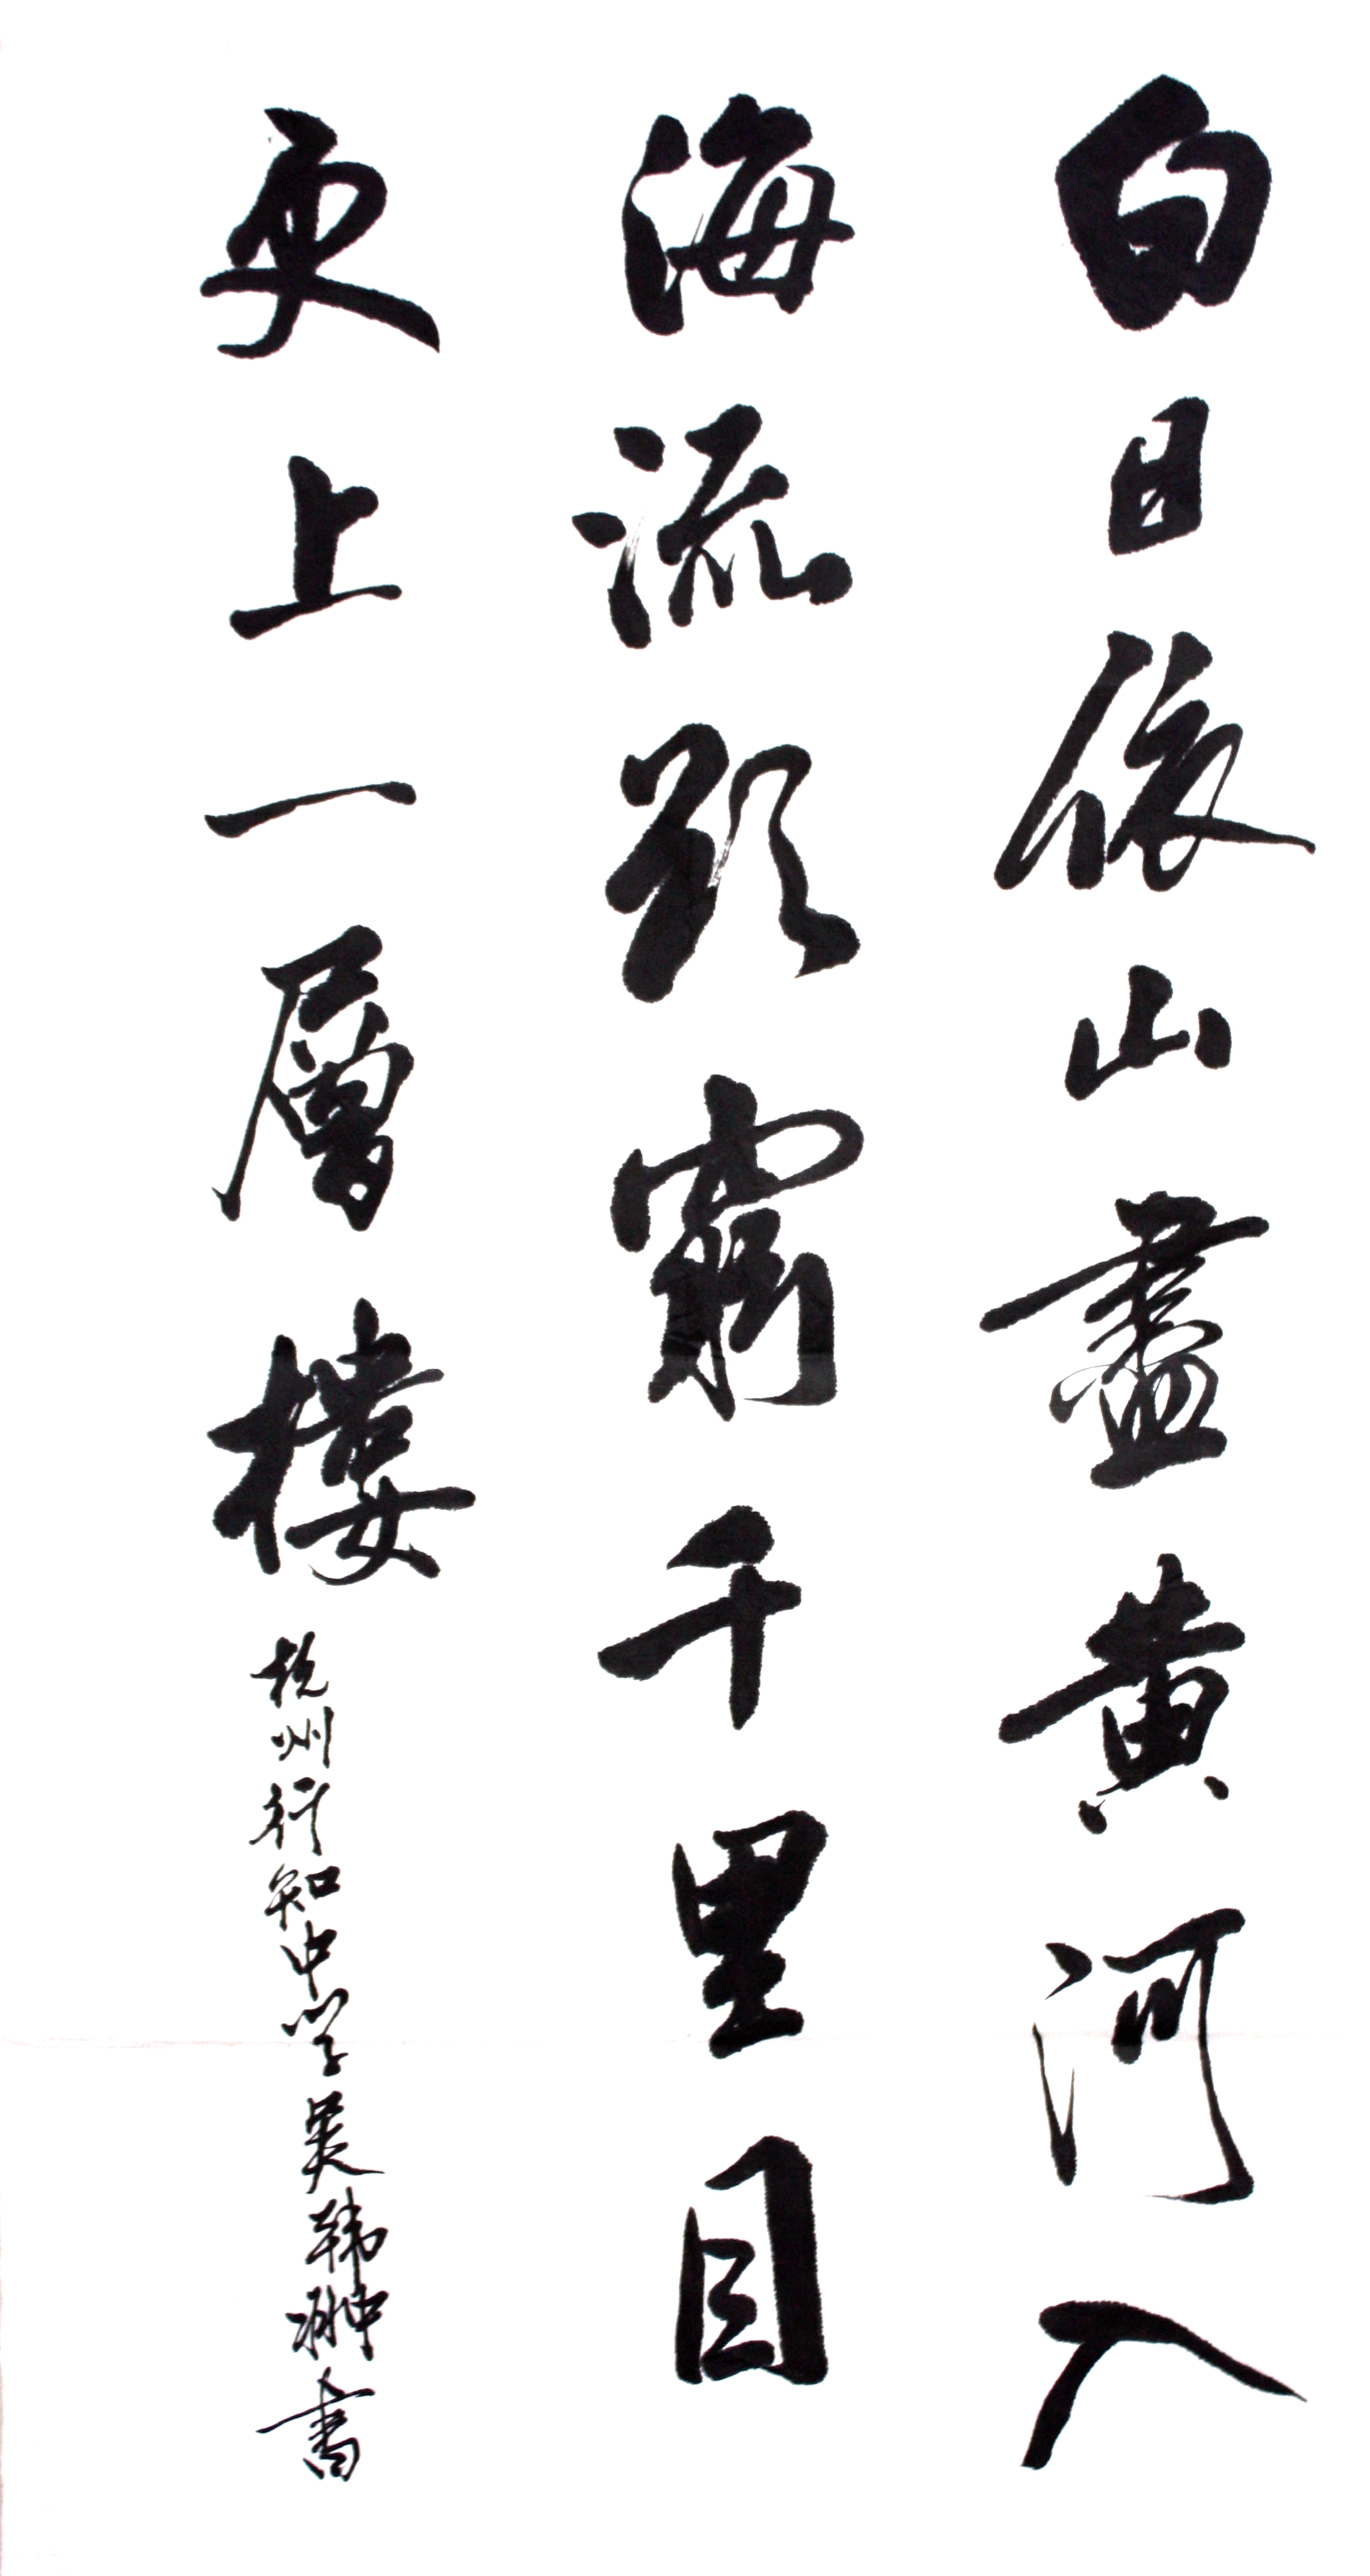 白日依山盡黄河入
海流欲窮千里目
更上一層樓
杭州行知中学吴韩翀書